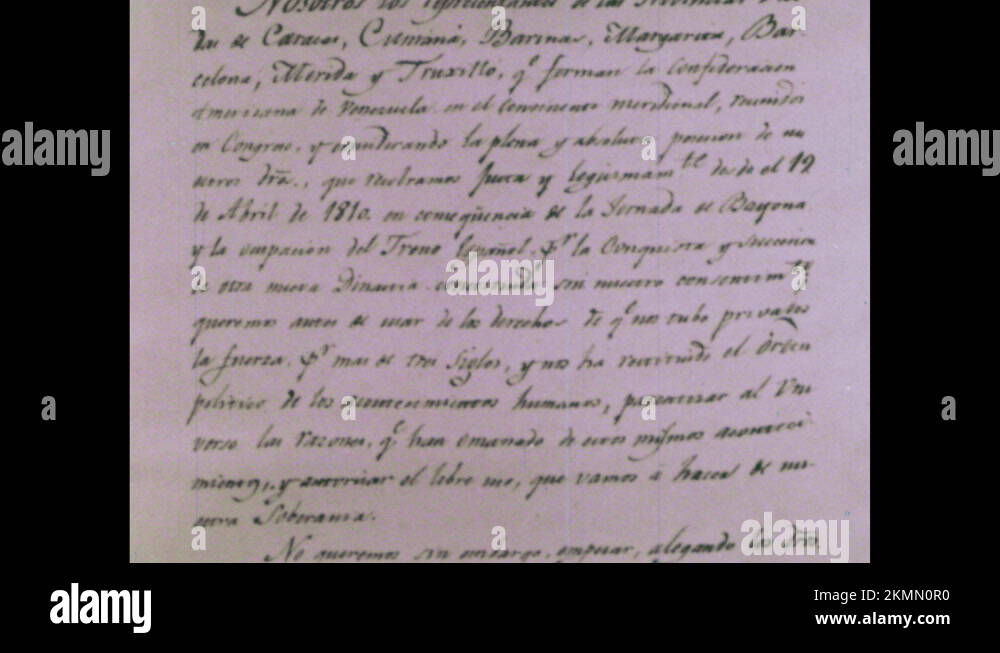 Nosotros los representantes de las Provincias
das de Caracas, Cumaná, Barinas, Margarita, Bar-
celona, Merida y Truxillo, q.e forman la Confederacion
Americana de Venezuela en el Continente meridional, reunidos
en Congreso, y considerando la plena y absoluta posesion de nu
estros dros., que recobramos justa y legitimam.te desde el 19
de Abril de 1810. en conseqüencia de la Jornada de Bayona
y la ocupacion del Trono Español, p.r la Conquista y sucesion
de otra nueva Dinastia constituida sin nuestro consentim.to
queremos antes de usar de los derechos de q.e nos tubo privados
la fuerza, p.r mas de tres siglos, y nos ha restituido el órden
politico de los acontecimientos humanos, patentizar al Uni
verso las razones, q.e han emanado de estos mismos aconteci
mientos, y autorizar el libre uso, que vamos á hacer de nu-
estra Soberania.
No queremos sin embargo, empezar, alegando los dros.
alamy
alamy
a
a
a
a
a
a
a
a
a
a
alamy
alamy
Image ID: 2KMN0R0
www.alamy.com